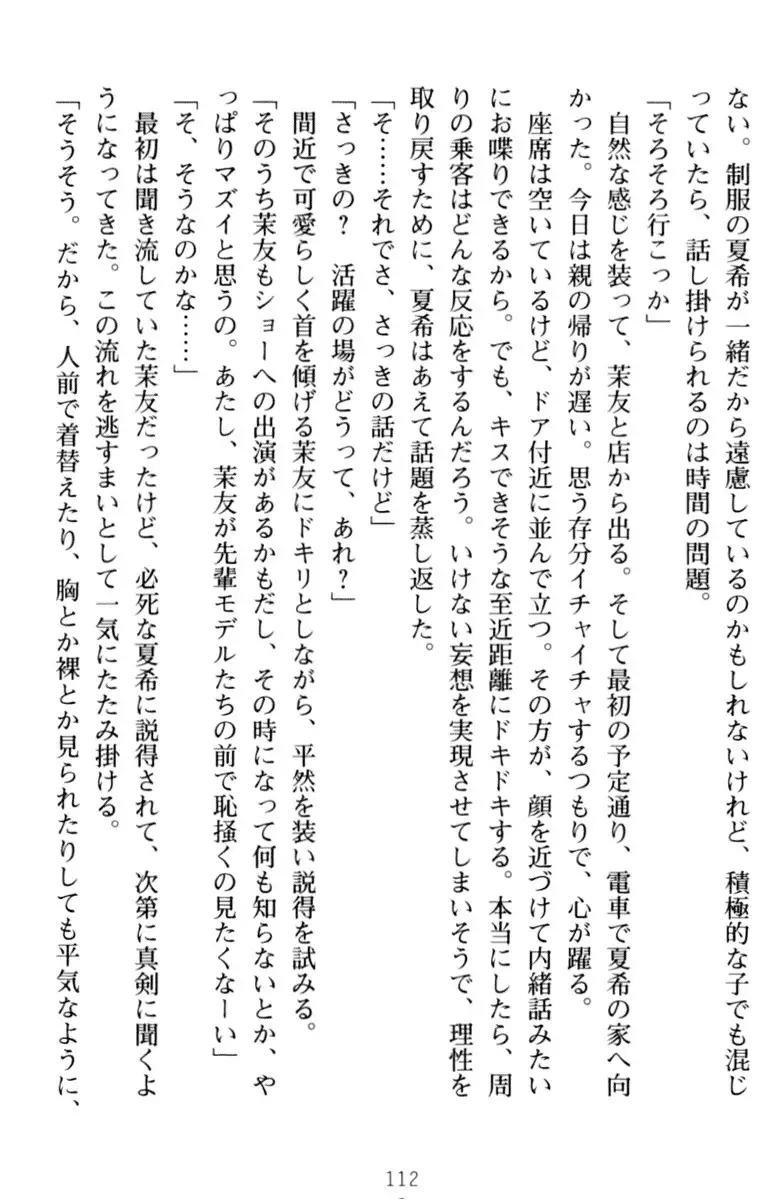 ない。制服の夏希が一緒だから遠慮しているのかもしれないけれど、積極的な子でも混じ
っていたら、話し掛けられるのは時間の問題。
「そろそろ行こっか」
自然な感じを装って、茉友と店から出る。そして最初の予定通り、電車で夏希の家へ向
かった。今日は親の帰りが遅い。思う存分イチャイチャするつもりで、心が躍る。
座席は空いているけど、ドア付近に並んで立つ。その方が、顔を近づけて内緒話みたい
にお喋りできるから。でも、キスできそうな至近距離にドキドキする。本当にしたら、周
りの乗客はどんな反応をするんだろう。いけない妄想を実現させてしまいそうで、理性を
取り戻すために、夏希はあえて話題を蒸し返した。
「そ……それでさ、さっきの話だけど」
「さっきの？　活躍の場がどうって、あれ？」
間近で可愛らしく首を傾げる茉友にドキリとしながら、平然を装い説得を試みる。
「そのうち茉友もショーへの出演があるかもだし、その時になって何も知らないとか、や
っぱりマズイと思うの。あたし、茉友が先輩モデルたちの前で恥掻くの見たくなーい」
「そ、そうなのかな……」
最初は聞き流していた茉友だったけど、必死な夏希に説得されて、次第に真剣に聞くよ
うになってきた。この流れを逃すまいとして一気にたたみ掛ける。
「そうそう。だから、人前で着替えたり、胸とか裸とか見られたりしても平気なように、
112